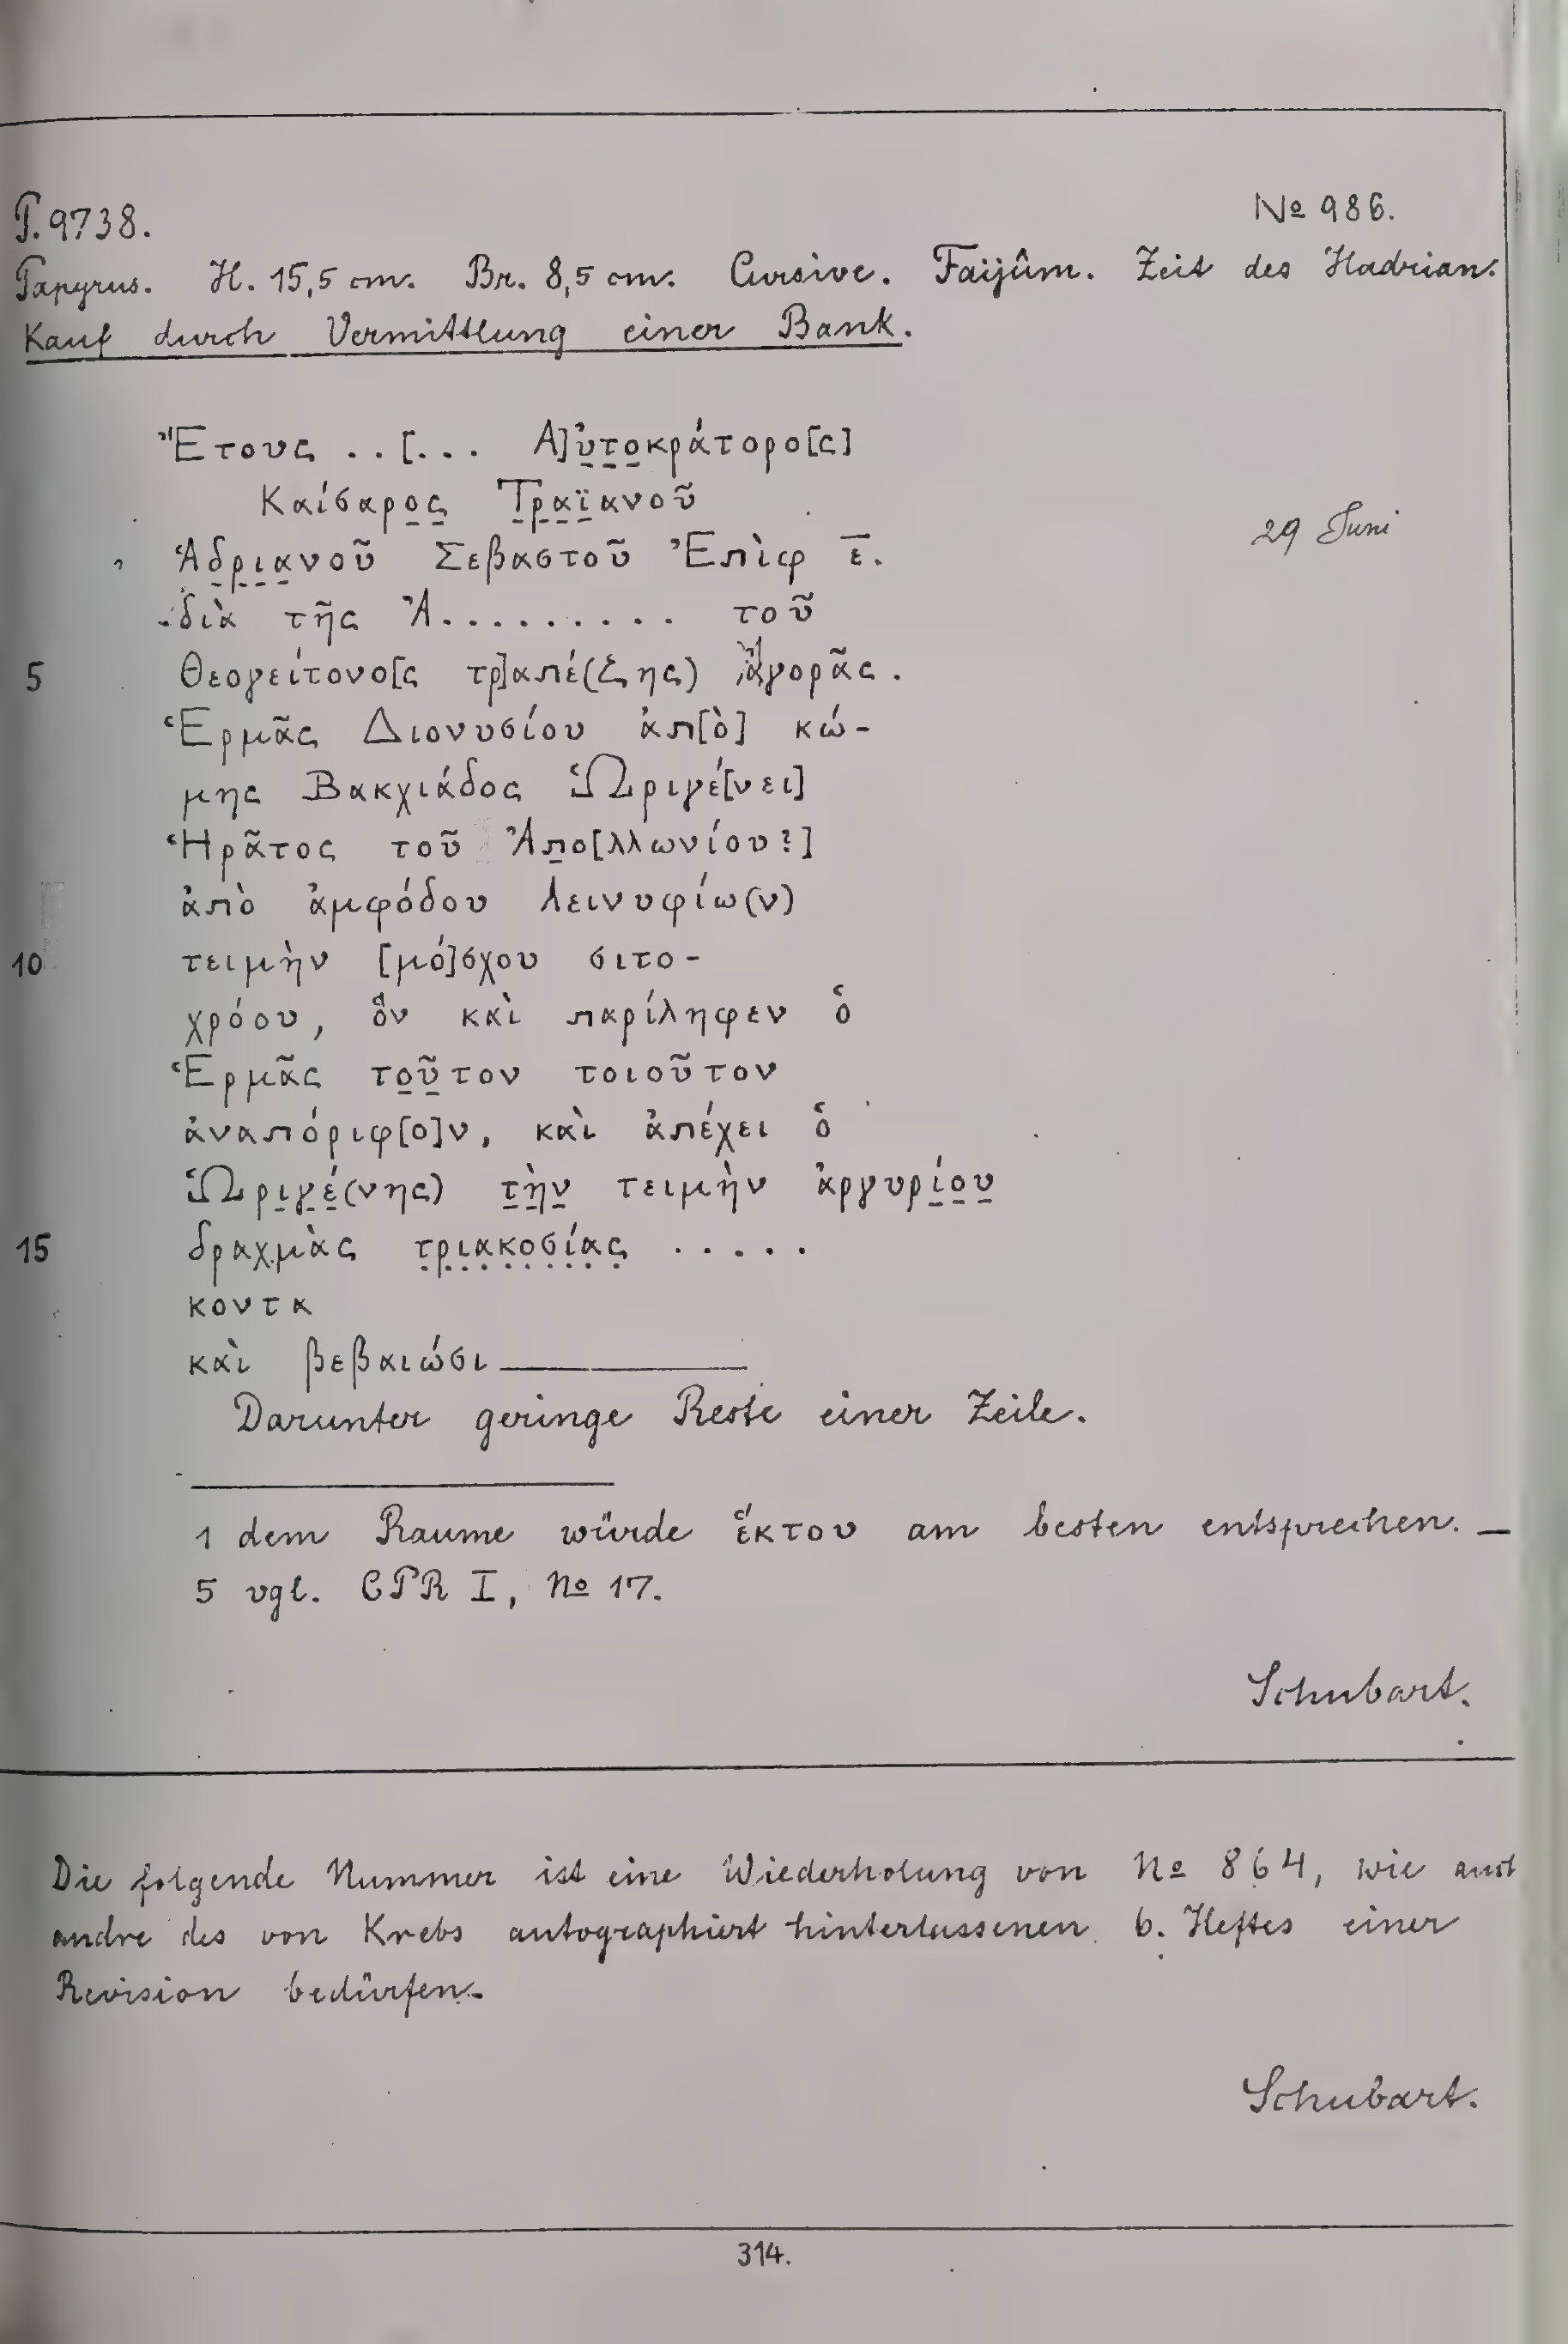 P. 9738. No 986.
Papyrus. H. 15,5 cm. Br. 8,5 cm. Cursive. Faijûm. Zeit des Hadrian.
Kauf durch Vermittlung einer Bank.
Ἔτους ..[... Α]ὐ̣τ̣ο̣κράτορο[ς]
Καίσαρο̣ς̣ Τ̣ρ̣α̣ϊ̣ανοῦ
29 Juni
Ἁδ̣ρ̣ι̣α̣νοῦ Σεβαστοῦ Ἐπὶφ ε̅.
διὰ τῆς Ἀ......... τοῦ
5 Θεογείτονο[ς τρ]απέ(ζης) Ἀγορᾶς.
Ἑρμᾶς Διονυσίου ἀπ[ὸ] κώ-
μης Βακχιάδος Ὡριγέ[νει]
Ἡρᾶτος τοῦ Ἀπ̣ο[λλωνίου?]
ἀπὸ ἀμφόδου Λεινυφίω(ν)
10 τειμὴν [μό]σχου σιτο-
χρόου, ὃν καὶ παρίληφεν ὁ
Ἑρμᾶς το̣ῦ̣τον τοιοῦτον
ἀναπόριφ[ο]ν, καὶ ἀπέχει ὁ
Ὡρι̣γ̣έ̣(νης) τ̣ὴ̣ν̣ τειμὴν ἀργυρί̣ο̣υ̣
15 δραχμὰς τ̣ρ̣ι̣α̣κ̣ο̣σ̣ί̣α̣ς̣ .....
κοντα
καὶ βεβαιώσι
Darunter geringe Reste einer Zeile.
1 dem Raume würde ἕκτου am besten entsprechen. —
5 vgl. CPR I, No 17.
Schubart.
Die folgende Nummer ist eine Wiederholung von No 864, wie auch
andre des von Krebs autographiert hinterlassenen 6. Heftes einer
Revision bedürfen.
Schubart.
314.